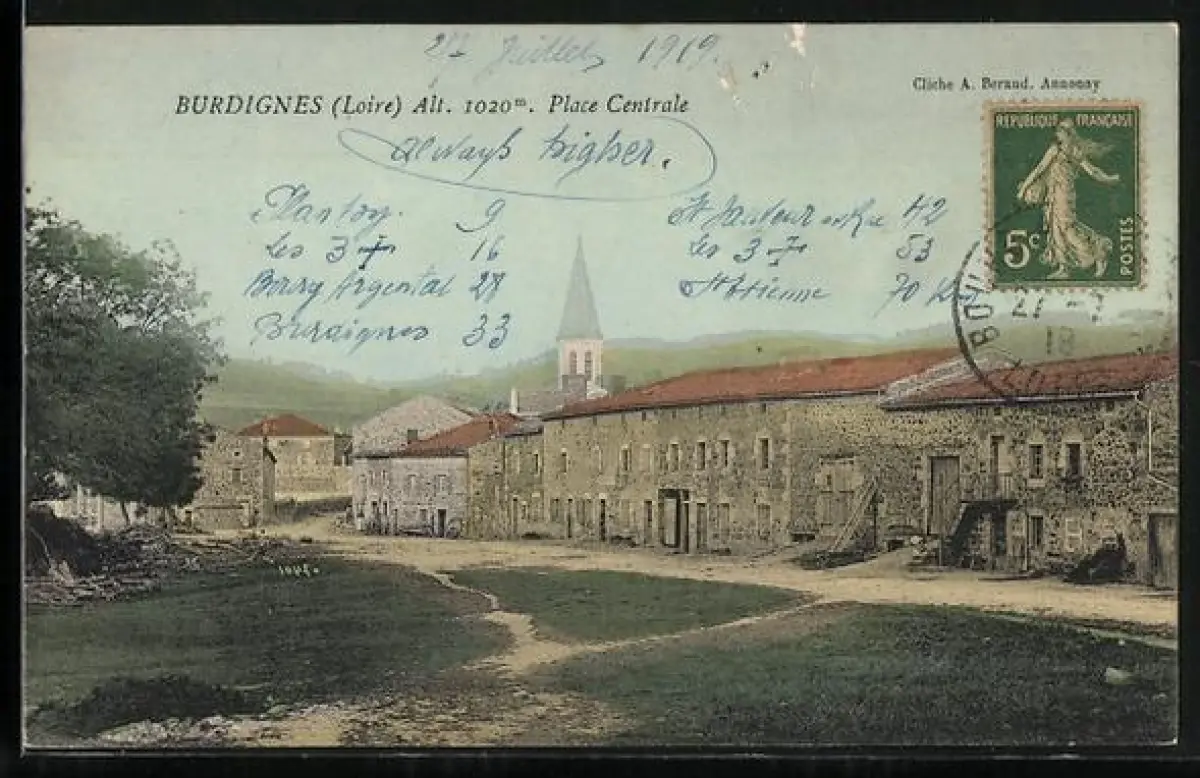 27 Juillet 1919.
BURDIGNES (Loire) Alt. 1020m. Place Centrale
Cliche A. Beraud. Annonay
REPUBLIQUE FRANÇAISE
5c POSTES
always higher.
9
Les 3 16
Bourg Argental 28
Burdignes 33
St Sauveur en Rue 42
Les 3 53
St Etienne 70 km
BOU
27